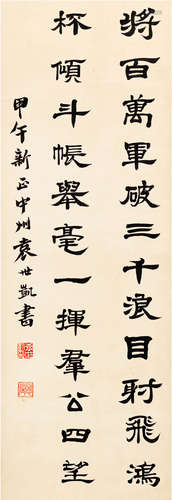 將百萬軍破三千浪目射飛鴻
杯傾斗帳舉毫一揮羣公四望
甲午新正中州袁世凱書